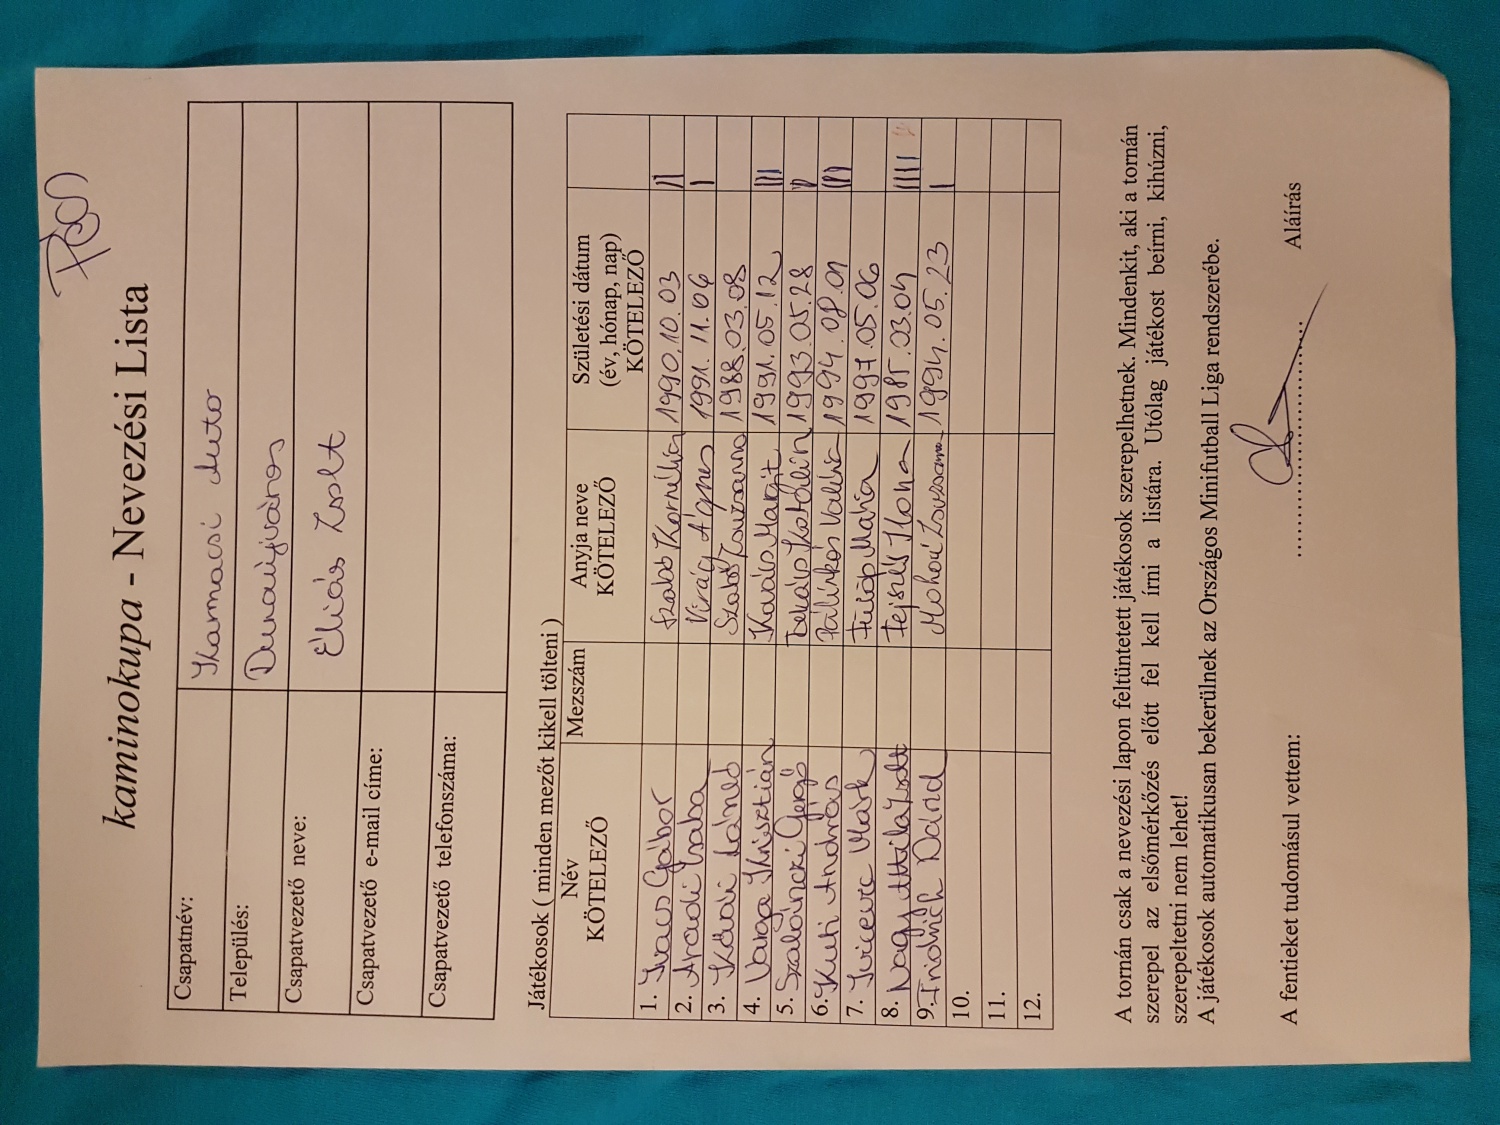 kaminokupa - Nevezési Lista
Csapatnév: Karmacsi Auto
Település: Dunaújváros
Csapatvezető neve: Éliás Zsolt
Csapatvezető e-mail címe:
Csapatvezető telefonszáma:
Játékosok ( minden mezőt kikell tölteni )
Név KÖTELEZŐ Mezszám Anyja neve KÖTELEZŐ Születési dátum (év, hónap, nap) KÖTELEZŐ
1. Ivacs Gábor Szabó Kornélia 1990.10.03 II
2. Aradi Csaba Virág Ágnes 1991.11.06 I
3. Kádái Szabó Zsuzsanna 1988.03.08
4. Varga Krisztián Kovács Margit 1991.05.12 III
5. Szalánczki Gergő Takács Katalin 1993.05.28
6. Kuti András Pálinkás Valéria 1994.08.01
7. Márk Fülöp Mária 1997.05.06
8. Nagy Attila Zsolt Ilona 1985.03.04 IIII
9. Dávid Zsuzsanna 1994.05.23 I
10.
11.
12.
A tornán csak a nevezési lapon feltüntetett játékosok szerepelhetnek. Mindenkit, aki a tornán
szerepel az elsőmérkőzés előtt fel kell írni a listára. Utólag játékost beírni, kihúzni,
szerepeltetni nem lehet!
A játékosok automatikusan bekerülnek az Országos Minifutball Liga rendszerébe.
A fentieket tudomásul vettem: .................................... Aláírás